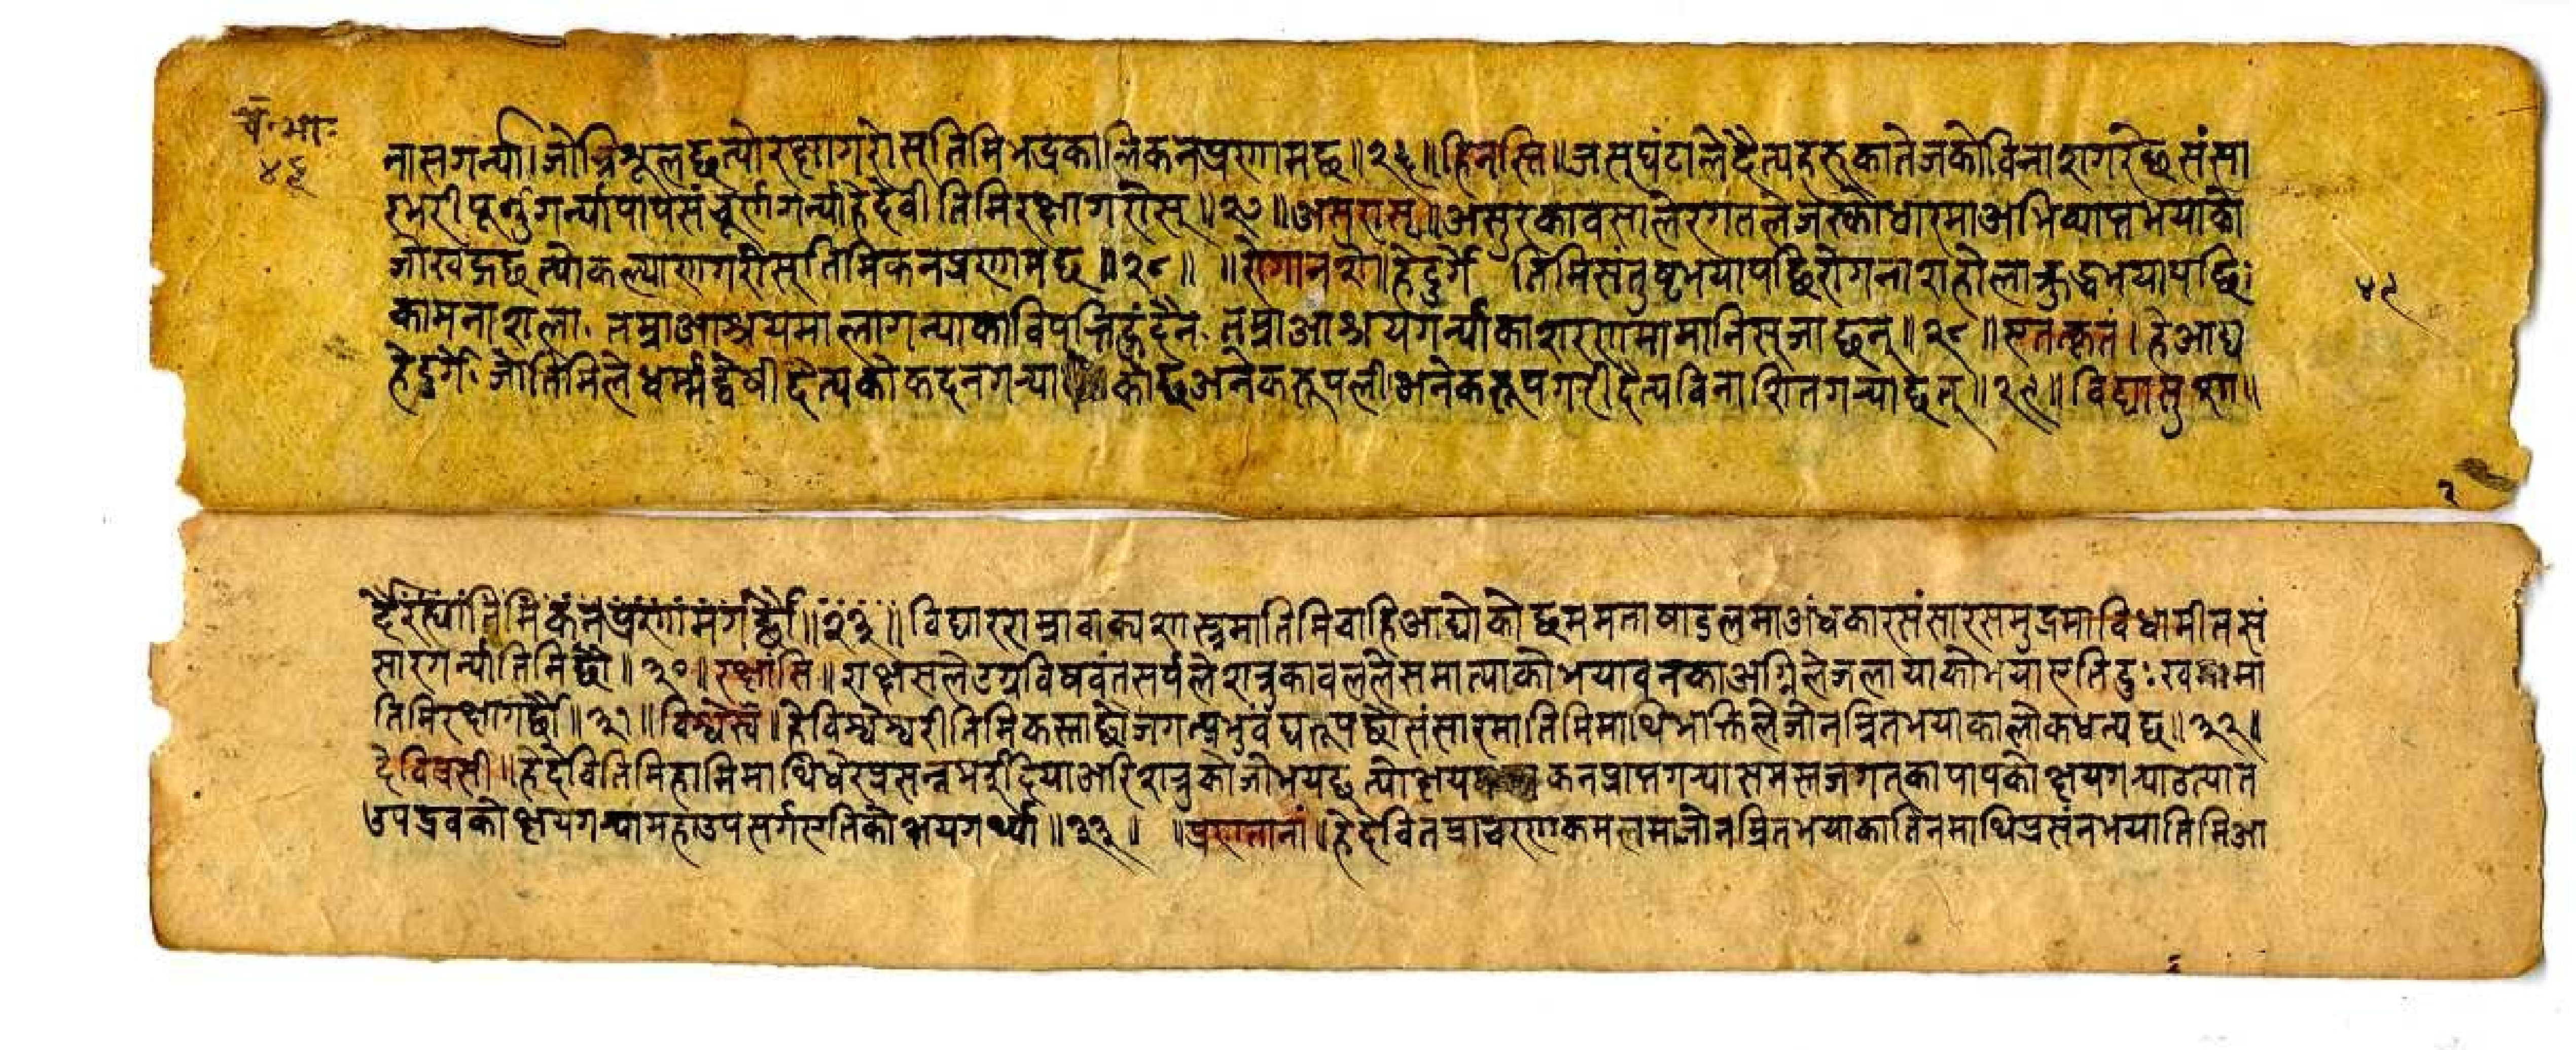 चं॰ भा॰
४६
नासगर्न्या। जो त्रिशूल छ त्यो रक्षा गरोस् तिमि भद्रकालिकन प्रणाम छ॥२६॥ हिनस्ति॥ जस् घंटाले दैत्यहरुका तेजको विनाश गरेछ संसा
रभरी पूर्णु गर्न्या पाप संचूर्ण गर्न्या हे देवी तिमि रक्षा गरोस्॥२७॥ असुरासृ॥ असुरका वसाले रगतले जस्को धारमा अभिव्याप्त भयाको
जो खड्ग छ त्यो कल्याण गरोस् तिमिकन प्रणाम छ॥२८॥ ॥रोगानशे॥ हे दुर्गे तिमि संतुष्ट भयापछि रोग नाश होला क्रुद्ध भयापछि
कामनाश ला॰ तम्रा आश्रयमा लागन्याका विपत्ति हुंदैन॰ तम्रा आश्रय गर्न्याका शरणमा मानिस् जाछन्॥२८॥ एतत्कृतं। हे आद्य
हे दुर्गे जो तिमिले धर्म्मद्वेषी दैत्यको कदन गन्या को छ अनेक रूपली अनेक रूप गरी दैत्य विनाशित गन्या छन्॥२९॥ विद्यासु शा॥
४९
वैरित्यां तिमिकन प्रणाम गर्छौ॥२३॥ विद्या र शम्रा वाक्य शास्त्रमा तिमि वाहि आद्यो को छ ममता षाडलमा अंधकार संसारसमुद्रमा विधामीत सं
सार गर्न्या तिमि छौ॥३०॥ रक्षांसि॥ राक्षसले उग्र विषवंत सर्पले शत्रुका वलले समात्याको भया वनका अग्निले जलायाको भया एति दुःख मा
तिमि रक्षा गर्छौ॥३१॥ विश्वेश्व॥ हे विश्वेश्वरी तिमि कस्ता छौ जगत्प्रभुवंघ रूप छौ संसारमा तिमि माथि भक्तिले जो नम्रित भयाका लोक धन्य छ॥३२॥
देवि प्रसी॥ हे देवि तिमि हामि माथि धेरै प्रसन्न भै हिंदिया अरि शत्रुको जो भय छ त्यो क्षय कन प्राप्त गन्या समस्त जगत्का पापको क्षय गन्या उत्पात
उपद्रवको क्षय गन्या महाउपसर्ग एतिको क्षय गर्न्या॥३३॥ ॥प्रणतानां॥ हे देवि तम्रा चरणकमलमा जो नम्रित भयाका तिनमाथि प्रसंन भया तिमि आ